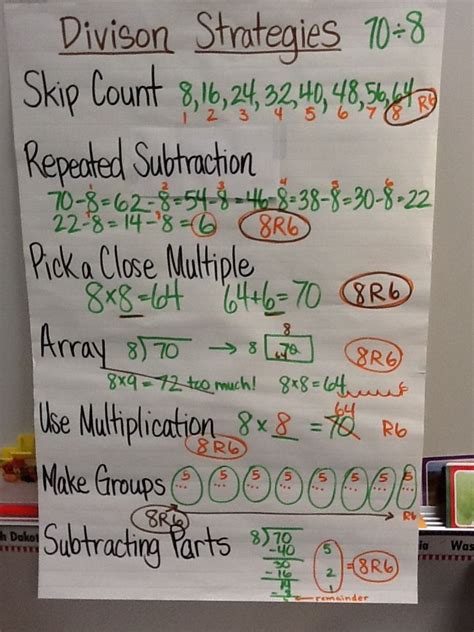 Divison Strategies 70÷8
Skip Count 8,16,24,32,40,48,56,64 8R6
1 2 3 4 5 6 7 8
Repeated Subtraction
1 2 3 4 5 6
70-8=62-8=54-8=46-8=38-8=30-8=22
22-8=14-8=6 8R6
Pick a Close Multiple
8×8=64 64+6=70 8R6
Array 8)70 → 8 8R6
8×9=72 too much! 8×8=64
Use Multiplication 8×8=70 64 R6
8R6
Make Groups 5 5 5 5 5 5 5 5
8R6 R6
Subtracting Parts 8)70
-40 5
30
-16 2 =8R6
14 1
remainder
h Dakot
ia Was